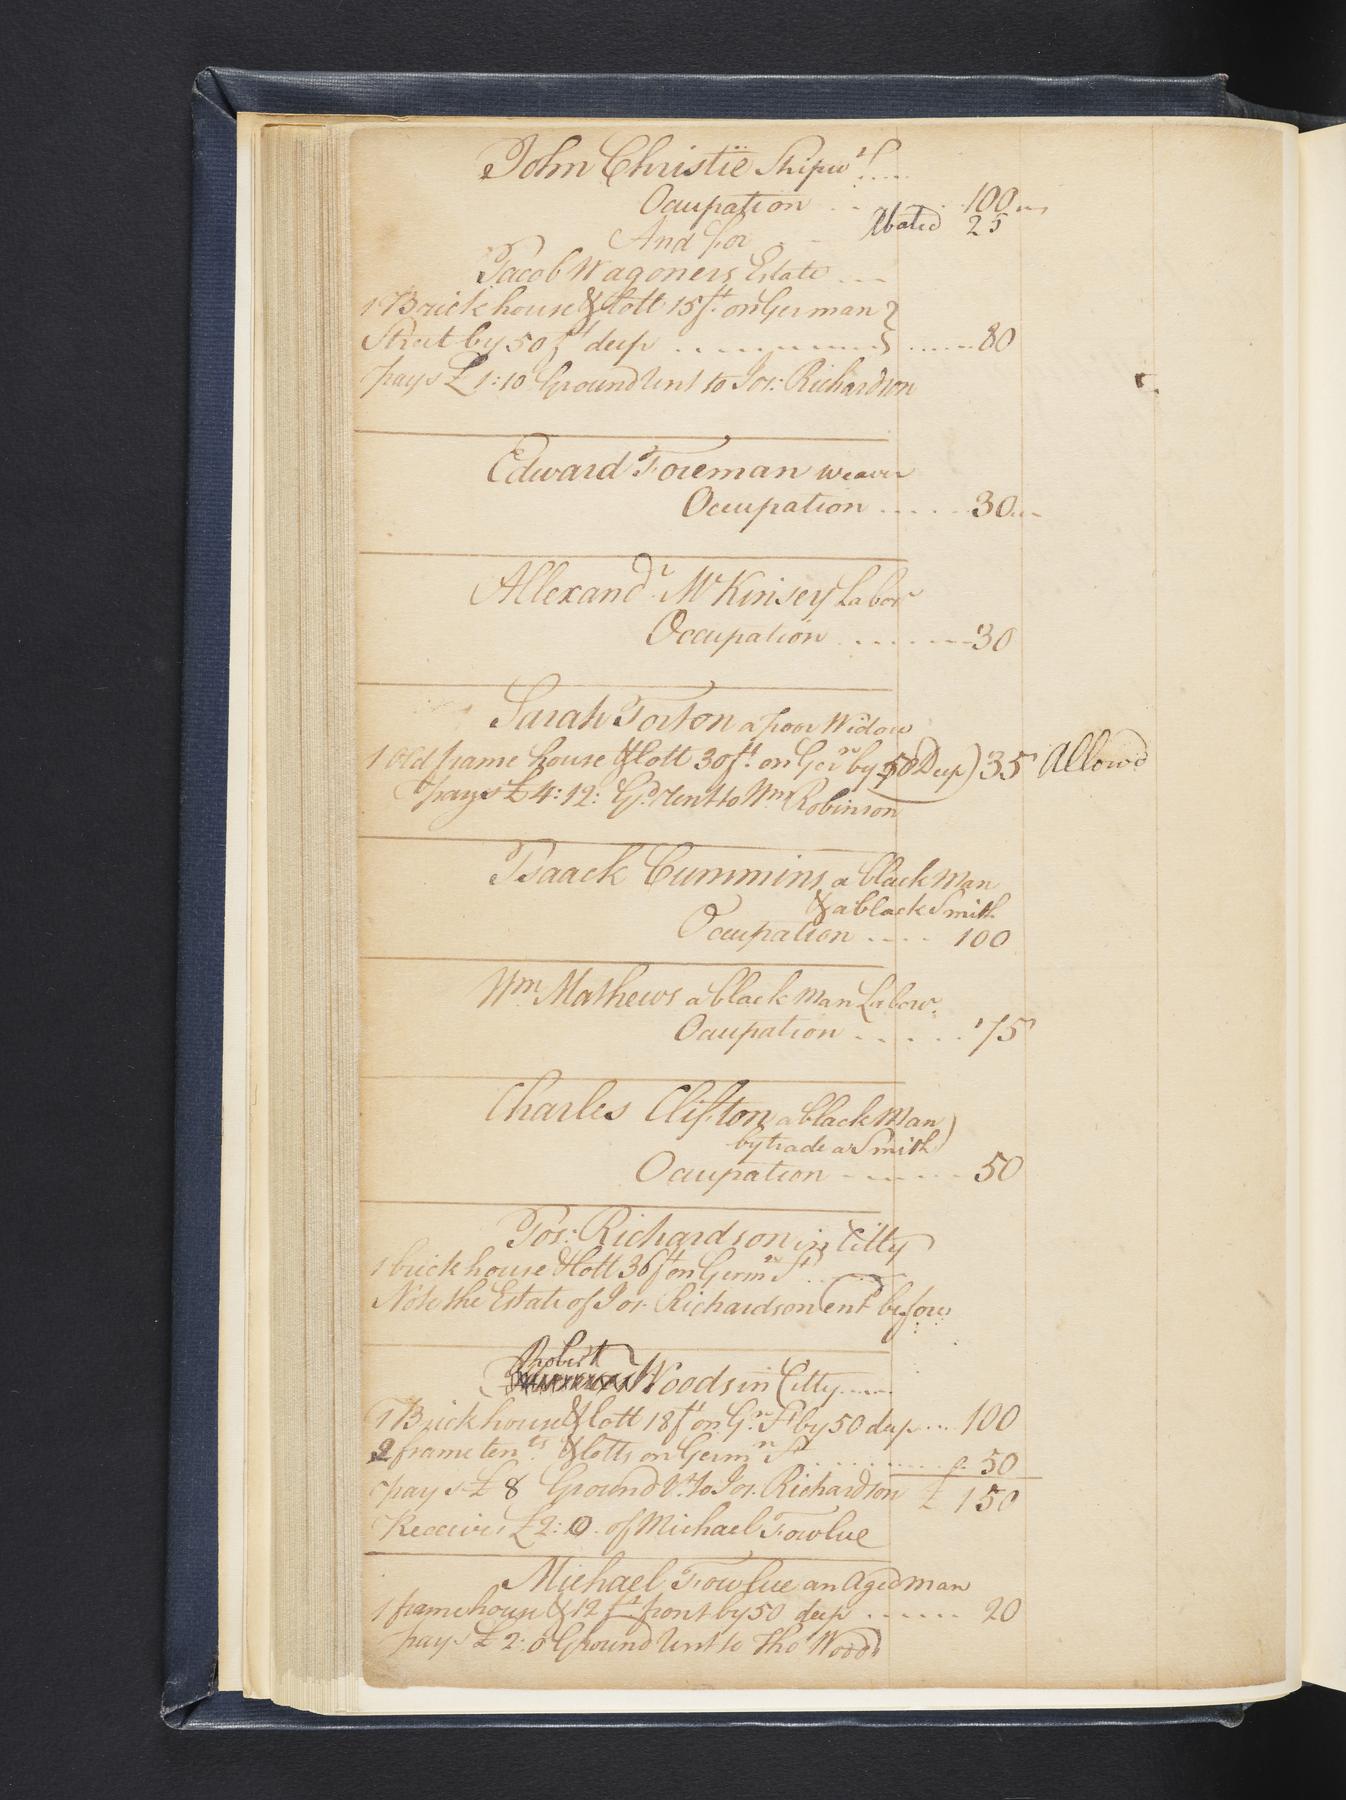 John Christie Shipwt.....
Ocupation . . . . . 100
Abated 25
And for
Jacob Wagoners Estate ...
1 Brick house & lott 15ft on German
Street by 50ft deep .......... 80
pays £ 1:10 Ground Rent to Jos: Richardson
Edward Foreman weaver
Occupation ..... 30
Allexandr McKinsey Labor
Occupation ....... 30
Sarah Torton a poor Widow
1 Old frame house & lott 30ft on Gern by 50 Deep) 35 Allowd
pays £ 4:12: Gd rent to Wm Robinson
Isaack Cummins a black Man
& a black Smith
Ocupation .... 100
Wm Mathews a black Man Labour.
Ocupation ..... 75
Charles Clifton a black Man)
by trade a Smith
Ocupation ------ 50
Jos: Richardson in Citty
1 brick house & lott 36ft on Germn St ....
Note the Estate of Jos. Richardson entd before
Robert
Woods in Citty.....
1 Brick house & lott 18ft on Grn St by 50 deep ... 100
2 frame tents & lotts on Germn St .......... 50
pays £ 8 Ground Rt to Jos. Richardson £ 150
Receives £ 2:0. of Michael Fowlue
Michael Fowlue an Aged man
1 frame house & 12ft front by 50 deep ...... 20
pays £ 2:0 Ground Rent to Tho Woods